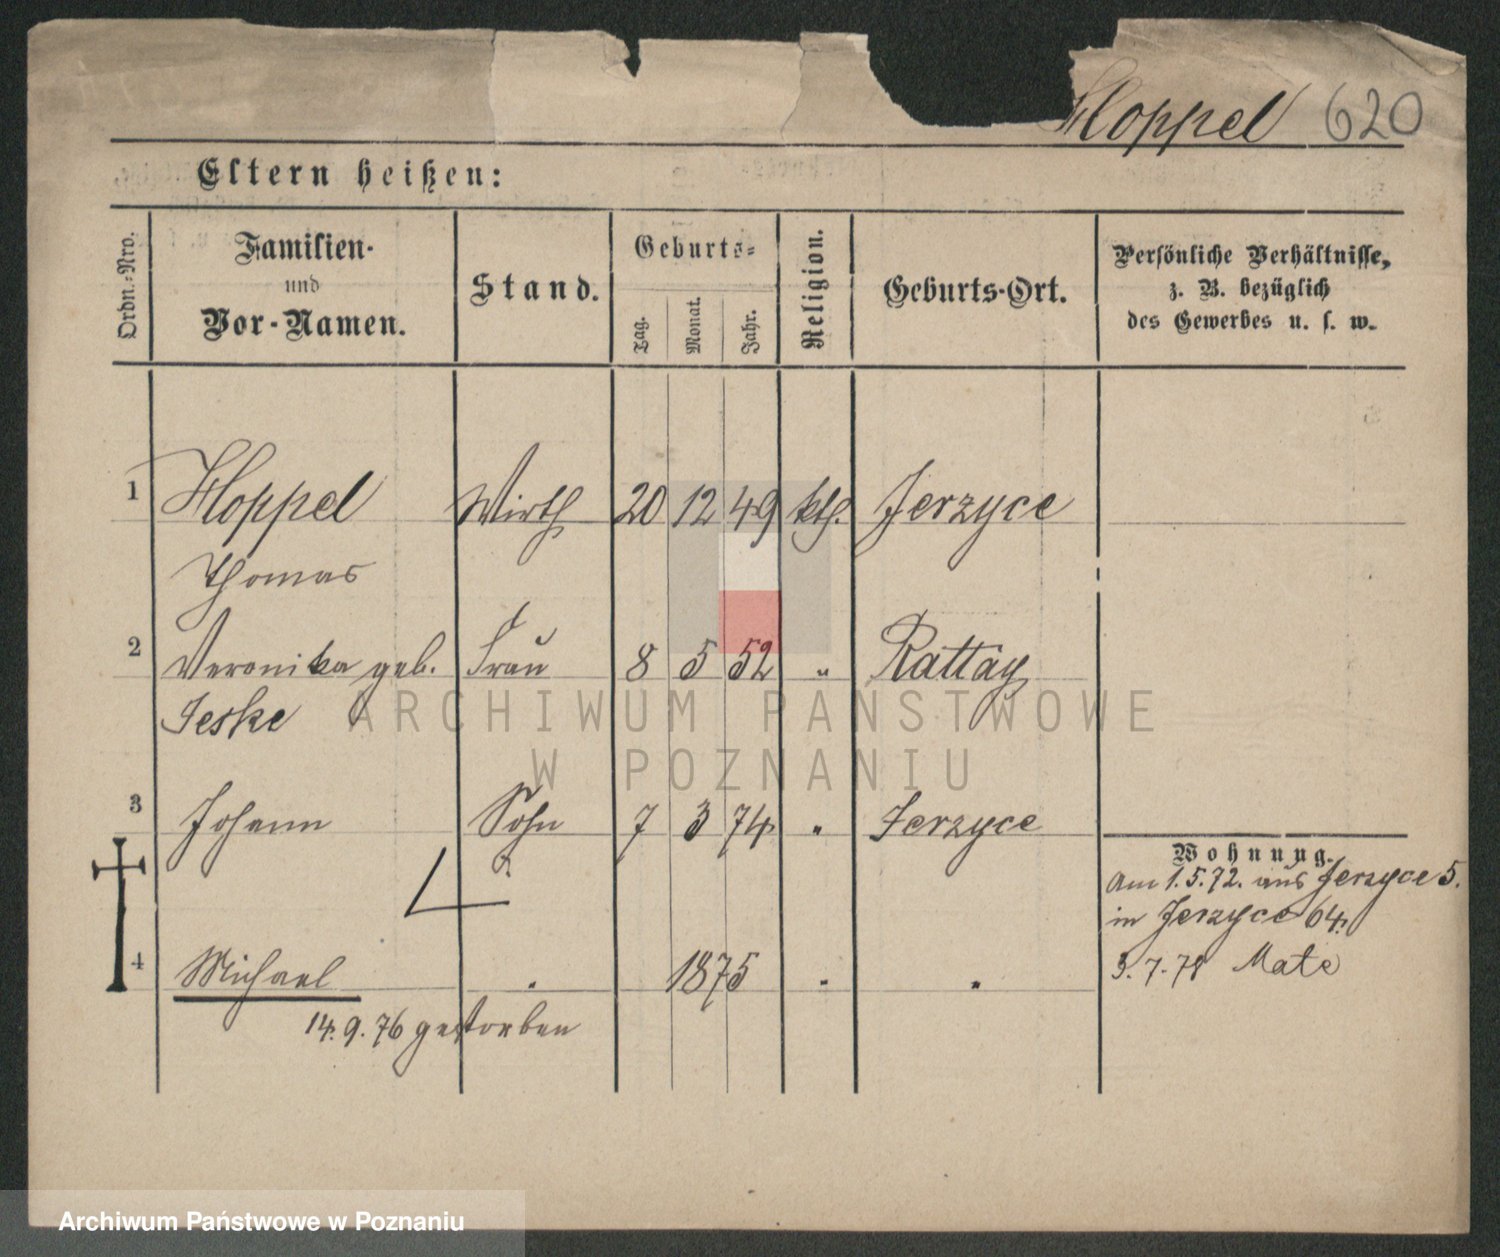 Hoppel 620
Eltern heißen:
Ordn.-Nro.
Familien-
und
Vor-Namen.
Stand.
Geburts-
Tag.
Monat.
Jahr.
Religion.
Geburts-Ort.
Persönliche Verhältnisse,
z. B. bezüglich
des Gewerbes u. s. w.
1 Hoppel Wirth 20 12 49 kth. Jerzyce
Thomas
2 Veronika geb. Frau 8 5 52 " Rattay
Jeske
3 Johann Sohn 7 3 74 " Jerzyce
Wohnung.
Am 1.5.72. aus Jerzyce 5.
in Jerzyce 64.
3.7.78 Mate
4 Michael " 1875 " "
14.9.76 gestorben
ARCHIWUM PAŃSTWOWE
W POZNANIU
Archiwum Państwowe w Poznaniu